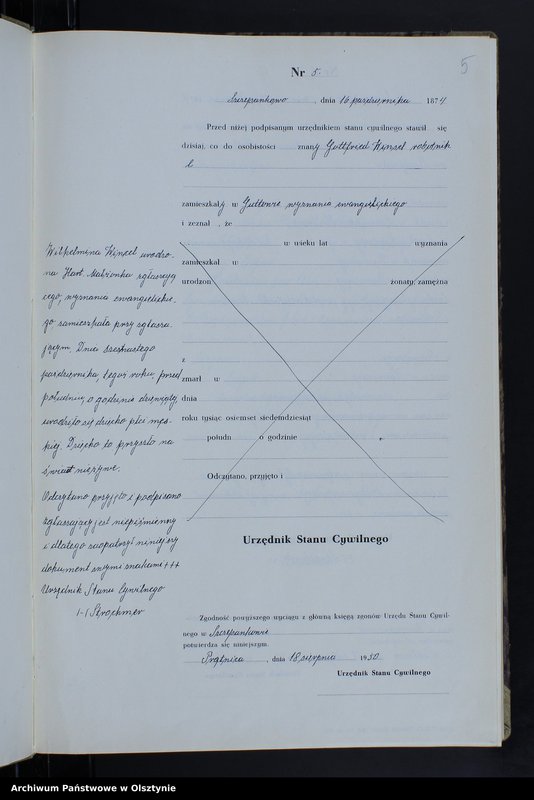 5
Nr 5.
Szczepankowo, dnia 16 października 1874
Przed niżej podpisanym urzędnikiem stanu cywilnego stawił się
dzisiaj, co do osobistości znany Gottfried Wensel robotnik
zamieszkały w wyznania ewangelickiego
i zeznał, że
w wieku lat wyznania
zamieszkał w
urodzon żonaty, zamężna
z
zmarł w
dnia
roku tysiąc osiemset siedemdziesiąt
połudn o godzinie
Odczytano, przyjęto i
Wilhelmina Wensel urodzo-
na Hart. Małżonka zgłaszają
cego, wyznania ewangielickie
go zamieszkała przy zgłasza
jącym. Dnia szesnastego
października, tegoż roku, przed
południu, o godzinie dziewiątej
urodziło się dziecko płci męs-
kiej. Dziecko to przyszło na
świat nieżywe.
Odczytano przyjęto i podpisano
zgłaszający jest niepiśmienny
i dlatego zaopatrzył niniejszy
dokument swymi znakami +++
Urzędnik Stanu Cywilnego
/-/ Strochmer
Urzędnik Stanu Cywilnego
Zgodność powyższego wyciągu z główną księgą zgonów Urzędu Stanu Cywil-
nego w Szczepankowie
potwierdza się niniejszym.
Prątnica, dnia 18 sierpnia 1950
Urzędnik Stanu Cywilnego
Archiwum Państwowe w Olsztynie